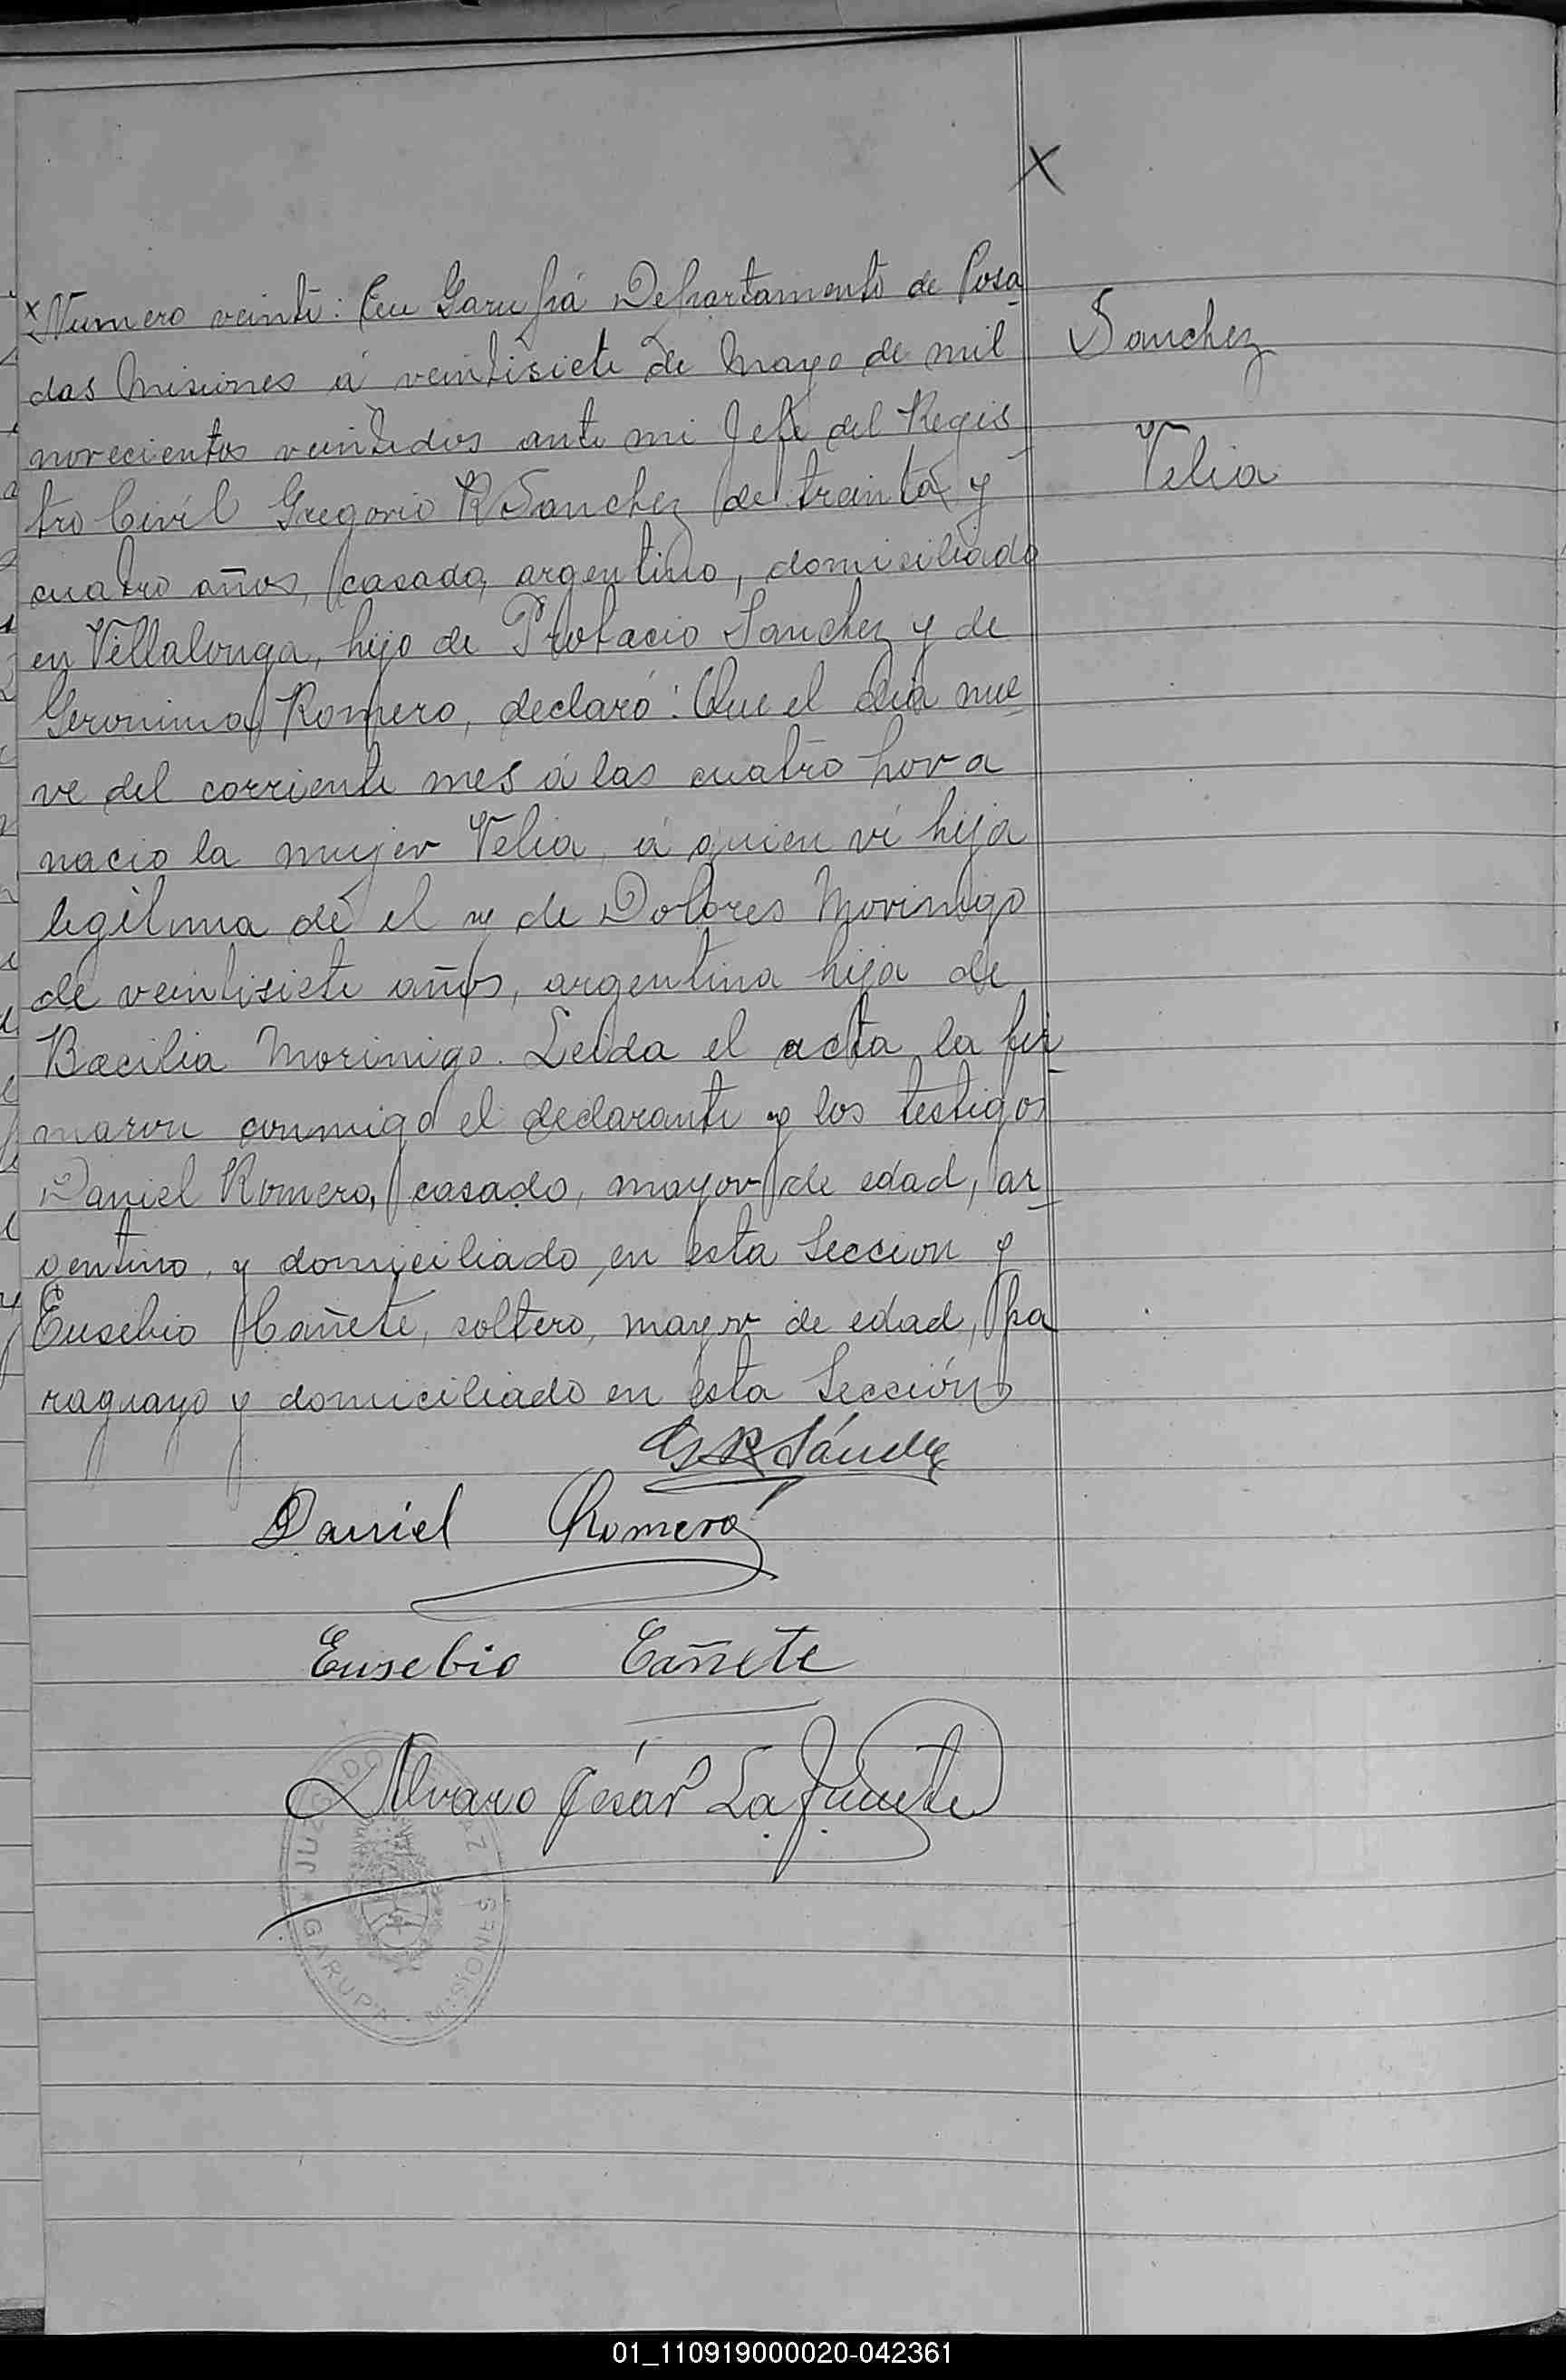 X
x Numero veinte: En Garupá Departamento de Posa
das Misiones á veintisiete de Mayo de mil
novecientos veintidos ante mi Jefe del Regis
tro Civil Gregorio R Sanchez de treinta y
cuatro años, casado, argentino, domiciliado
en Villalonga, hijo de Protacio Sanchez y de
Geronima Romero, declaró: Que el dia nue
ve del corriente mes á las cuatro hora
nacio la mujer Velia, á quien ví hija
legitima de el y de Dolores Morinigo
de veintisiete años, argentina hija de
Bacilia Morinigo. Leida el acta la fir
maron conmigo el declarante y los testigos
Daniel Romero, casado, mayor de edad, ar
gentino, y domiciliado, en esta Seccion y
Eusebio Cañete, soltero, mayor de edad, pa
raguayo y domiciliado en esta Sección
Sanchez
Velia
G R Sánchez
Daniel Romero
Eusebio Cañete
Alvaro César La Fuente
JUZGADO DE PAZ
GARUPA - MISIONES
01_110919000020-042361